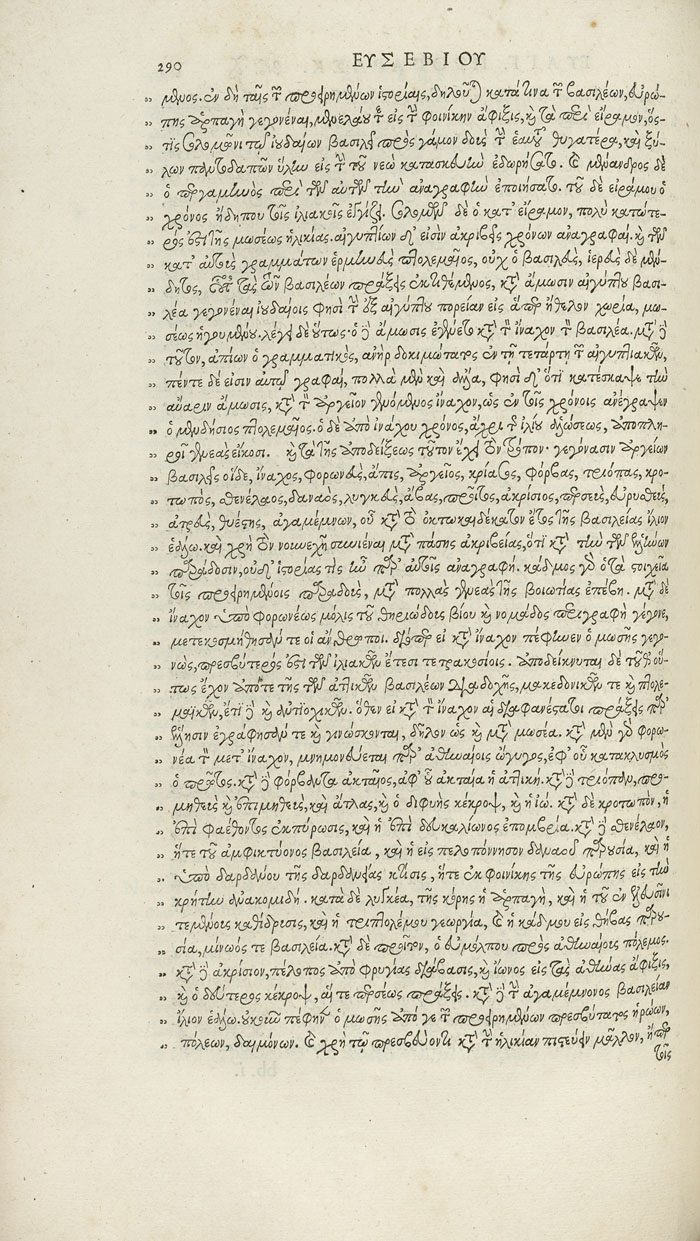 290 ΕΥΣΕΒΙΟΥ
„ μενος. ἐν δὴ ταῖς τῶν προειρημένων ἱστορίαις, δηλοῦται κατά τινα τῶν βασιλέων, εὐρώ-
„ πης ἁρπαγὴ γεγονέναι, μενελάου τὲ εἰς τὴν φοινίκην ἄφιξις, καὶ τὰ περὶ εἴραμον, ὅς-
„ τις σολομῶνι τῷ ἰουδαίων βασιλεῖ πρὸς γάμον δοὺς τὴν ἑαυτοῦ θυγατέρα, καὶ ξύ-
„ λων παντοδαπῶν ὕλην εἰς τὴν τοῦ νεὼ κατασκευὴν ἐδωρήσατο. καὶ μένανδρος δὲ
„ ὁ περγαμηνὸς περὶ τῶν αὐτῶν τὴν ἀναγραφὴν ἐποιήσατο. τοῦ δὲ εἰράμου ὁ
„ χρόνος ἤδη που τοῖς ἰλιακοῖς ἐγγίζει. σολομῶν δὲ ὁ κατ' εἴραμον, πολὺ κατώτε-
„ ρός ἐστι τῆς μωσέως ἡλικίας. αἰγυπτίων δ' εἰσὶν ἀκριβεῖς χρόνων ἀναγραφαί. καὶ τῶν
„ κατ' αὐτοὺς γραμμάτων ἑρμηνεὺς πτολεμαῖος, οὐχ ὁ βασιλεὺς, ἱερεὺς δὲ μέν-
„ δητος, οὗτος τὰς τῶν βασιλέων πράξεις ἐκτιθέμενος, κατὰ ἄμωσιν αἰγύπτου βασι-
„ λέα γεγονέναι ἰουδαίοις φησὶ τὴν ἐξ αἰγύπτου πορείαν εἰς ἅπερ ἤθελον χωρία, μω-
„ σέως ἡγουμένου. λέγει δὲ οὕτως· ὁ δὲ ἄμωσις ἐγένετο κατὰ τὸν ἴναχον τὸν βασιλέα. μετὰ δὲ
„ τοῦτον, ἀπίων ὁ γραμματικὸς, ἀνὴρ δοκιμώτατος ἐν τῇ τετάρτῃ τῶν αἰγυπτιακῶν,
„ πέντε δέ εἰσιν αὐτῷ γραφαὶ, πολλὰ μὲν καὶ ἄλλα, φησὶ δ' ὅτι κατέσκαψε τὴν
„ αὔαριν ἄμωσις, κατὰ τὸν ἀργεῖον γενόμενος ἴναχον, ὡς ἐν τοῖς χρόνοις ἀνέγραψεν
„ ὁ μενδήσιος πτολεμαῖος. ὁ δὲ ἀπὸ ἰνάχου χρόνος, ἄχρι τῆς ἰλίου ἁλώσεως, ἀποπλη-
„ ροῖ γενεὰς εἴκοσι. καὶ τὰ τῆς ἀποδείξεως τοῦτον ἔχει τὸν τρόπον· γεγόνασιν ἀργείων
„ βασιλεῖς οἵδε, ἴναχος, φορωνεὺς, ἄπις, ἀργεῖος, κρίασος, φόρβας, τριόπας, κρο-
„ τωπὸς, σθενέλαος, δαναὸς, λυγκεὺς, ἄβας, προῖτος, ἀκρίσιος, περσεὺς, εὐρυσθεὺς,
„ ἀτρεὺς, θυέστης, ἀγαμέμνων, οὗ κατὰ τὸ ὀκτωκαιδέκατον ἔτος τῆς βασιλείας ἴλιον
„ ἑάλω. καὶ χρὴ τὸν νουνεχῆ συνιέναι μετὰ πάσης ἀκριβείας, ὅτι κατὰ τὴν τῶν ἑλλήνων
„ παράδοσιν, οὐδ' ἱστορίας τις ἦν παρ' αὐτοῖς ἀναγραφή. κάδμος γὰρ ὁ τὰ στοιχεῖα
„ τοῖς προειρημένοις παραδοὺς, μετὰ πολλὰς γενεὰς τῆς βοιωτίας ἐπέβη. μετὰ δὲ
„ ἴναχον ὑπὸ φορωνέως μόλις τοῦ θηριώδους βίου καὶ νομάδος περιγραφὴ γέγονε,
„ μετεκοσμήθησάν τε οἱ ἄνθρωποι. διόπερ εἰ κατὰ ἴναχον πέφηνεν ὁ μωσῆς γεγο-
„ νὼς, πρεσβύτερός ἐστι τῶν ἰλιακῶν ἔτεσι τετρακοσίοις. ἀποδείκνυται δὲ τοῦθ' οὕ-
„ πως ἔχον ἀπό τε τῆς τῶν ἀττικῶν βασιλέων διαδοχῆς, μακεδονικῶν τε καὶ πτολε-
„ μαϊκῶν, ἔτι δὲ καὶ ἀντιοχικῶν. ὅθεν εἰ κατὰ τὸν ἴναχον αἱ διαφανέσταται πράξεις παρ'
„ ἕλλησιν ἐγράφησάν τε καὶ γινώσκονται, δῆλον ὡς καὶ μετὰ μωσέα. κατὰ μὲν γὰρ φορω-
„ νέα τὸν μετ' ἴναχον, μνημονεύεται παρ' ἀθηναίοις ὤγυγος, ἐφ' οὗ κατακλυσμὸς
„ ὁ πρῶτος. κατὰ δὲ φόρβαντα ἀκταῖος, ἀφ' οὗ ἀκταία ἡ ἀττική. κατὰ δὲ τριόπαν, προ-
„ μηθεὺς καὶ ἐπιμηθεὺς, καὶ ἄτλας, καὶ ὁ διφυὴς κέκροψ, καὶ ἡ ἰώ. κατὰ δὲ κροτωπὸν, ἡ
„ ἐπὶ φαέθοντος ἐκπύρωσις, καὶ ἡ ἐπὶ δευκαλίωνος ἐπομβρία. κατὰ δὲ σθενέλαον,
„ ἥ τε τοῦ ἀμφικτύονος βασιλεία, καὶ ἡ εἰς πελοπόννησον δαναοῦ παρουσία, καὶ ἡ
„ ὑπὸ δαρδάνου τῆς δαρδανίας κτίσις, ἥ τε ἐκ φοινίκης τῆς εὐρώπης εἰς τὴν
„ κρήτην ἀνακομιδή. κατὰ δὲ λυγκέα, τῆς κόρης ἡ ἁρπαγὴ, καὶ ἡ τοῦ ἐν ἐλευσῖνι
„ τεμένους καθίδρυσις, καὶ ἡ τριπτολέμου γεωργία, καὶ ἡ κάδμου εἰς θήβας παρου-
„ σία, μίνωός τε βασιλεία. κατὰ δὲ προῖτον, ὁ εὐμόλπου πρὸς ἀθηναίους πόλεμος.
„ κατὰ δὲ ἀκρίσιον, πέλοπος ἀπὸ φρυγίας διάβασις, καὶ ἴωνος εἰς τὰς ἀθήνας ἄφιξις,
„ καὶ ὁ δεύτερος κέκροψ, αἵ τε περσέως πράξεις. κατὰ δὲ τὴν ἀγαμέμνονος βασιλείαν
„ ἴλιον ἑάλω. οὐκοῦν πέφηνε ὁ μωσῆς ἀπό γε τῶν προειρημένων πρεσβύτατος ἡρώων,
„ πόλεων, δαιμόνων. καὶ χρὴ τῷ πρεσβεύοντι κατὰ τὴν ἡλικίαν πιστεύειν μᾶλλον, ἤπερ
τοῖς